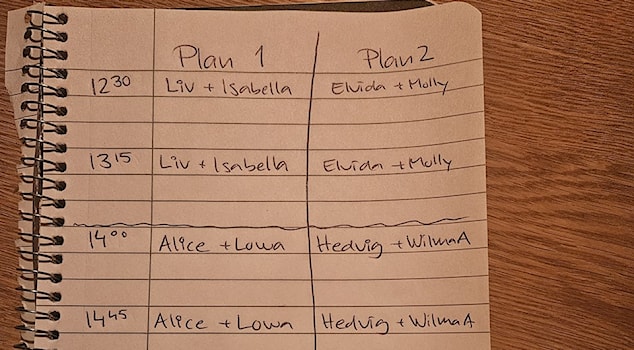 Plan 1 Plan 2
12³⁰ Liv + Isabella Elvida + Molly
13¹⁵ Liv + Isabella Elvida + Molly
14⁰⁰ Alice + Lowa Hedvig + Wilma A
14⁴⁵ Alice + Lowa Hedvig + Wilma A